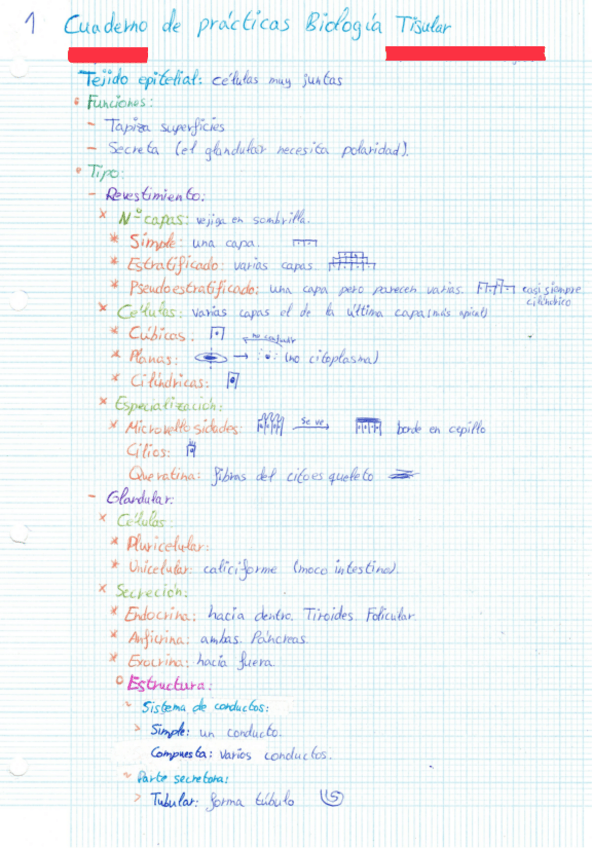 1 Cuaderno de prácticas Biología Tisular
Tejido epitelial: células muy juntas
Funciones:
- Tapiza superficies
- Secreta (el glandular necesita polaridad).
Tipo:
- Revestimiento:
* Nº capas: vejiga en sombrilla.
* Simple: una capa.
* Estratificado: varias capas.
* Pseudoestratificado: una capa pero parecen varias. casi siempre
cilíndrico
* Células: varias capas el de la última capa (más apical)
* Cúbicas. no confundir
* Planas: → (no citoplasma)
* Cilíndricas:
* Especialización:
* Microvellosidades: se ve → borde en cepillo
Cilios:
Queratina: fibras del citoesqueleto
- Glandular:
* Células:
* Pluricelular:
* Unicelular: caliciforme (moco intestino).
* Secreción:
* Endocrina: hacia dentro. Tiroides. Folicular.
* Anficrina: ambas. Páncreas.
* Exocrina: hacia fuera.
Estructura:
Sistema de conductos:
> Simple: un conducto.
Compuesta: varios conductos.
Parte secretora:
> Tubular: forma túbulo